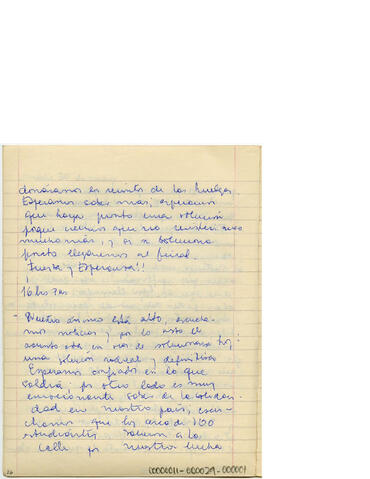 donáramos el recinto de las huelgas.
Esperamos saber más, esperamos
que haya pronto una solución
poque creemos que no resistiremos
mucho más, y si se soluciona
pronto llegaremos al final.
Fuerza y Esperanza!!
16 hrs 7
- Nuestro ánimo está alto, escucha-
mos noticias y por lo visto el
asunto está en vías de solucionarse hoy,
una solución radical y definitiva
Esperamos confiados en lo que
saldrá, por otro lado es muy
emocionante saber de la solidari-
dad en nuestro país, escu-
chamos que los cerca de 100
estudiantes salieron a la
calle por nuestra lucha
26
0000011-000029-000001